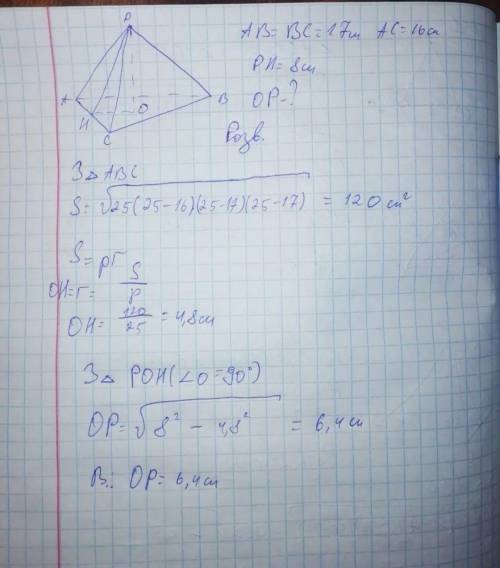 P
AB = BC = 17см AC = 16см
PH = 8см
A
O
B
OP - ?
H
C
Розв.
З △ ABC
S = √25(25-16)(25-17)(25-17) = 120 см²
S = pr
OH = r = S/p
OH = 120/25 = 4,8 см
З △ POH (∠O = 90°)
OP = √8² - 4,8² = 6,4 см
В.: OP = 6,4 см